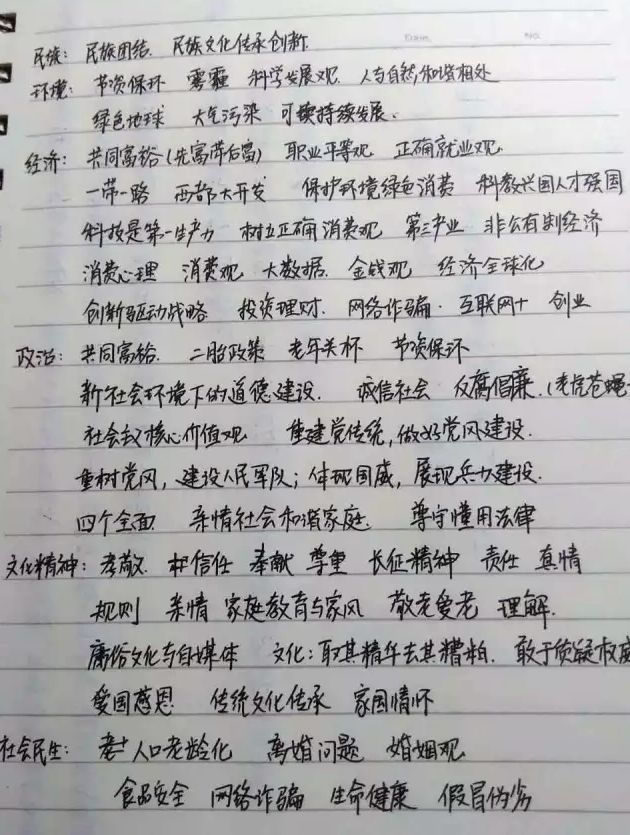 民族: 民族团结 民族文化传承创新.
环境: 节资保环 雾霾 科学发展观. 人与自然,和谐相处
绿色地球 大气污染 可持续发展.
经济: 共同富裕(先富带后富) 职业平等观 正确就业观.
一带一路 西部大开发 保护环境绿色消费 科教兴国人才强国
科技是第一生产力 树立正确消费观 第三产业 非公有制经济
消费心理 消费观 大数据. 金钱观 经济全球化
创新驱动战略 投资理财. 网络诈骗. 互联网+ 创业
政治: 共同富裕. 二胎政策 老年关怀 节资保环
新社会环境下的道德建设. 诚信社会 反腐倡廉.(老虎苍蝇
社会主义核心价值观 重建党传统,做好党风建设.
重树党风,建设人民军队;体现国威,展现兵力建设.
四个全面 亲情社会和谐家庭. 尊守懂用法律
文化精神: 孝敬. 信任 奉献 尊重 长征精神 责任 真情
规则 亲情 家庭教育与家风 敬老爱老 理解.
庸俗文化与自媒体 文化:取其精华去其糟粕. 敢于质疑权威
爱国感恩 传统文化传承 家国情怀
社会民生: 人口老龄化 离婚问题 婚姻观
食品安全 网络诈骗 生命健康 假冒伪劣